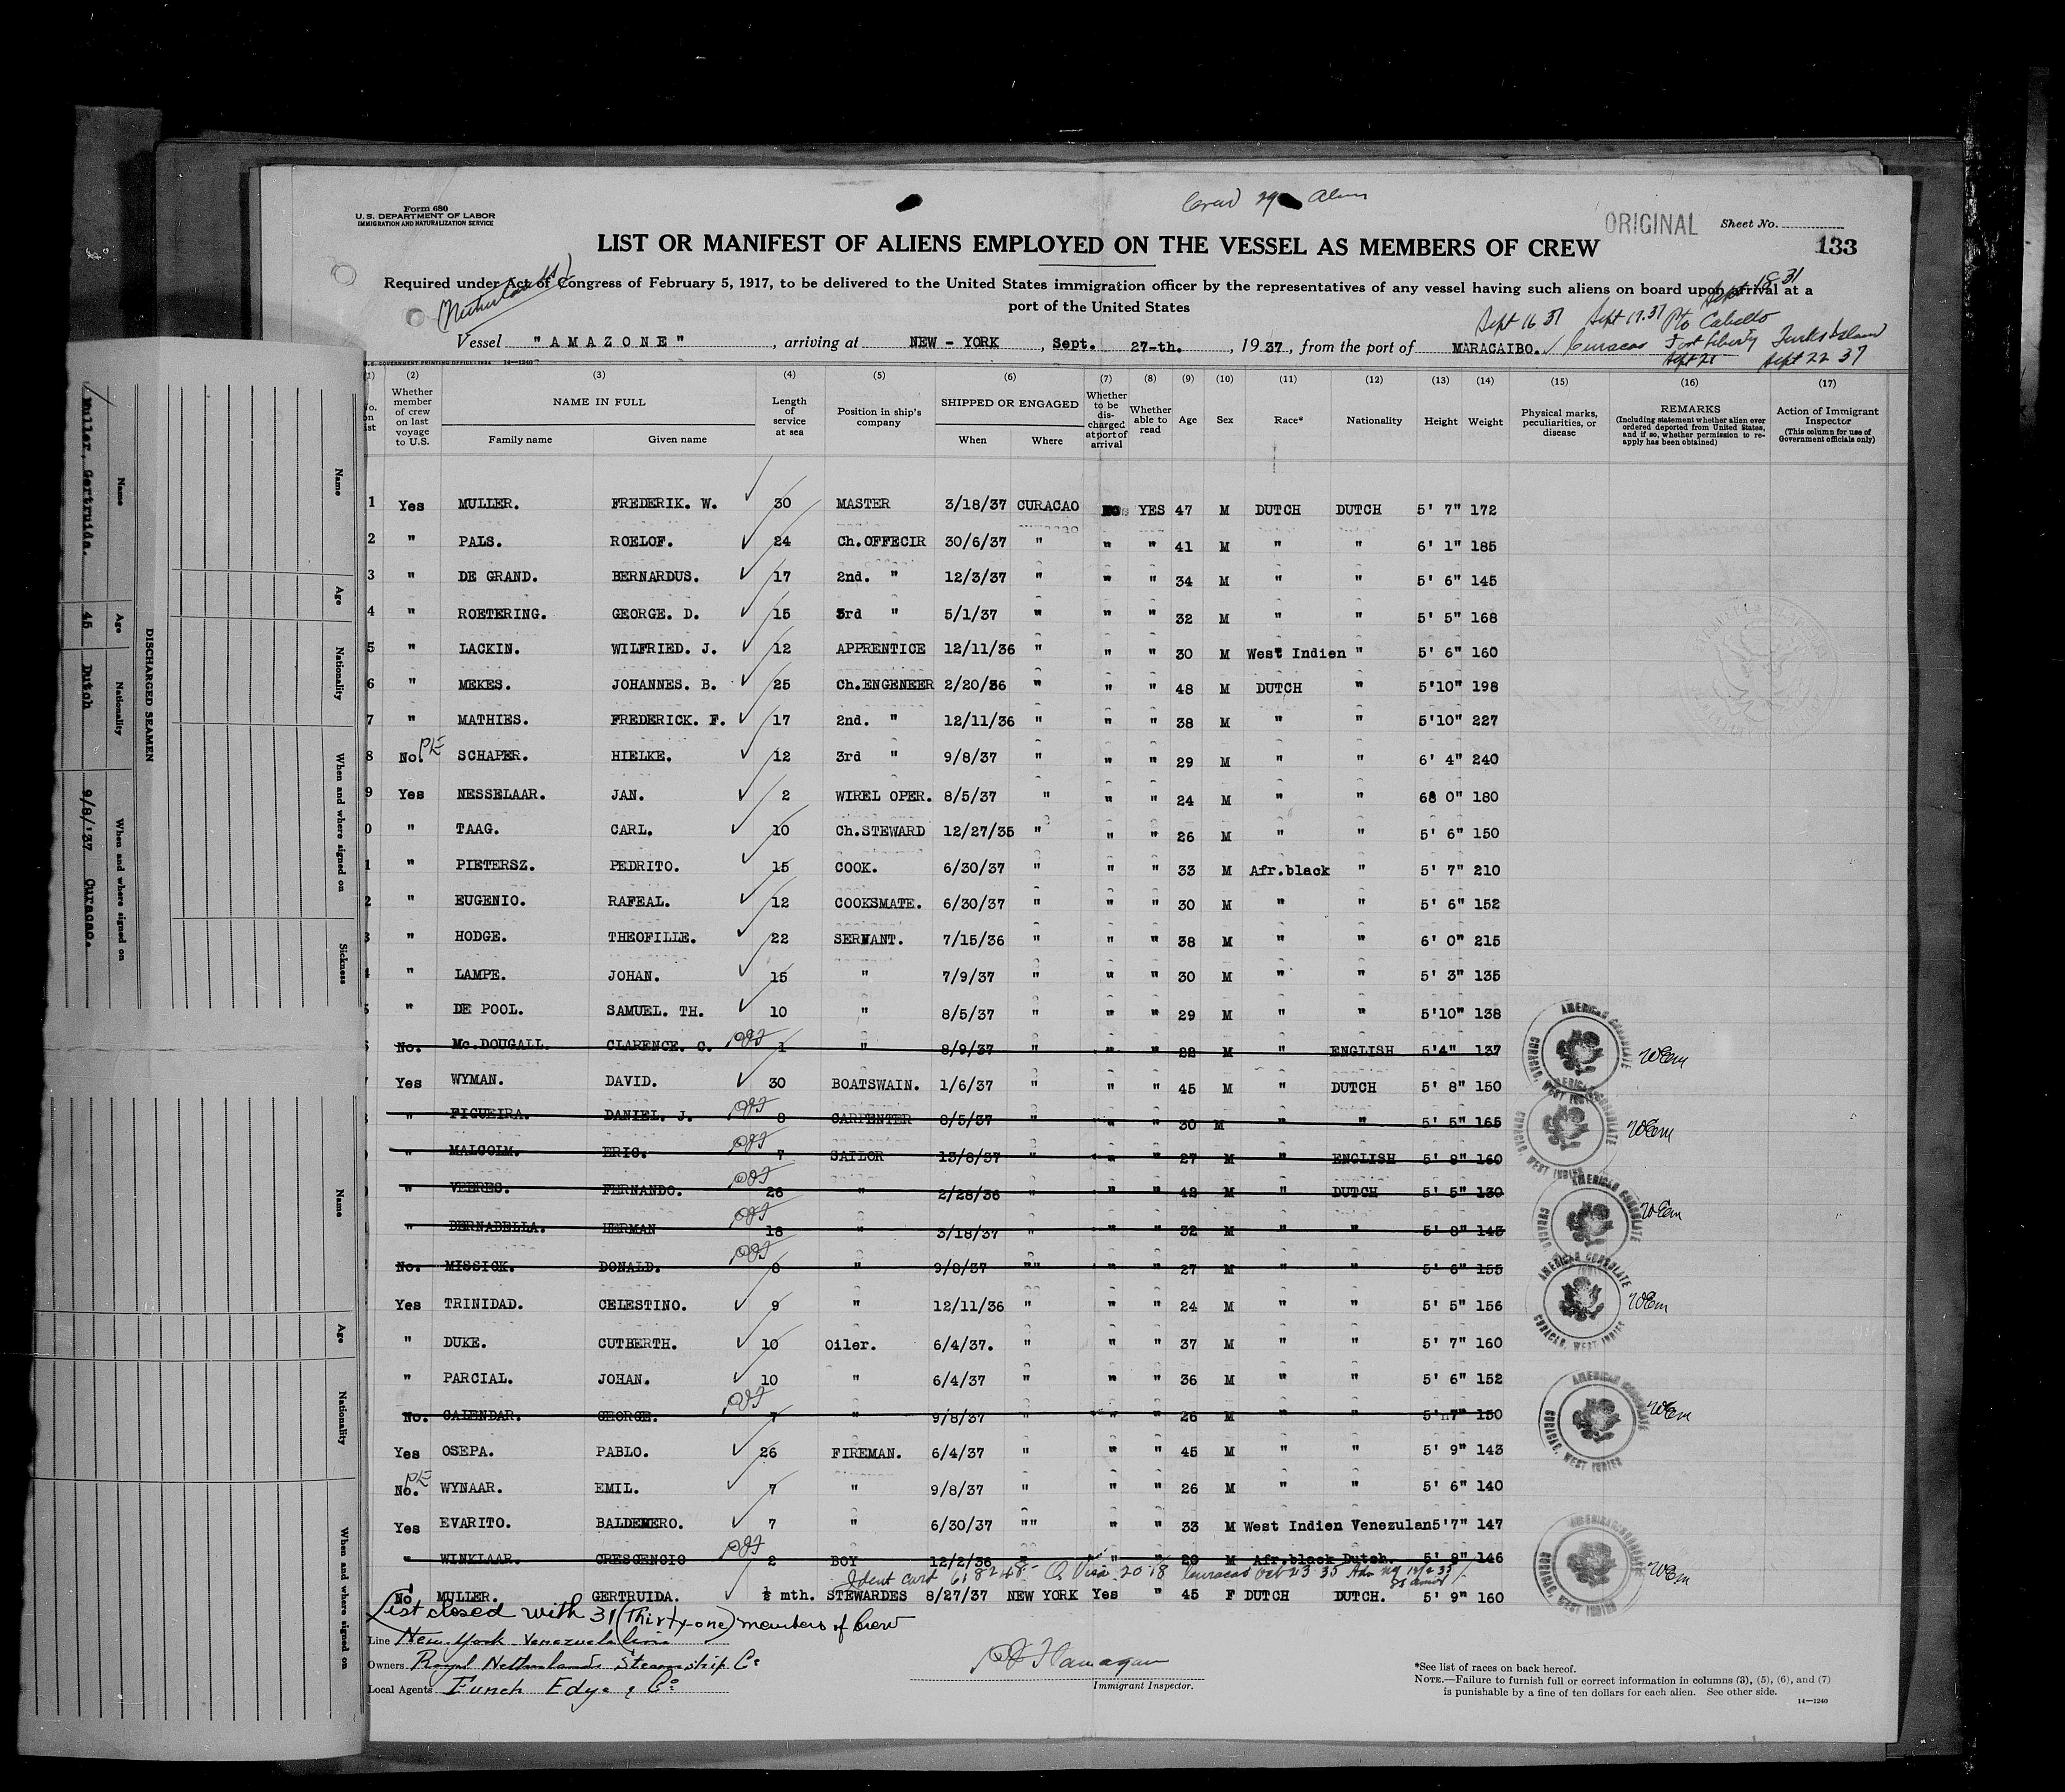 Form 680
U.S. DEPARTMENT OF LABOR
IMMIGRATION AND NATURALIZATION SERVICE
ORIGINAL
Sheet No.
133
LIST OR MANIFEST OF ALIENS EMPLOYED ON THE VESSEL AS MEMBERS OF CREW
Required under Act of Congress of February 5, 1917, to be delivered to the United States immigration officer by the representatives of any vessel having such aliens on board upon arrival at a
port of the United States
Sept 16 37 Sept 17.37 Pto Cabello
Vessel "AMAZONE", arriving at NEW-YORK, Sept. 27-th., 1937, from the port of MARACAIBO. Curacao Fort Liberty Turks Island
Sept 21 Sept 22 37
(1) (2) (3) (4) (5) (6) (7) (8) (9) (10) (11) (12) (13) (14) (15) (16) (17)
No. on list
Whether member of crew on last voyage to U.S.
NAME IN FULL
Family name
Given name
Length of service at sea
Position in ship's company
SHIPPED OR ENGAGED
When
Where
Whether to be discharged at port of arrival
Whether able to read
Age
Sex
Race*
Nationality
Height
Weight
Physical marks, peculiarities, or disease
REMARKS
(Including statement whether alien ever ordered deported from United States, and if so, whether permission to reapply has been obtained)
Action of Immigrant Inspector
(This column for use of Government officials only)
1 Yes MULLER. FREDERIK. W. 30 MASTER 3/18/37 CURACAO YES 47 M DUTCH DUTCH 5' 7" 172
2 " PALS. ROELOF. 24 Ch.OFFECIR 30/6/37 " " " 41 M " " 6' 1" 185
3 " DE GRAND. BERNARDUS. 17 2nd. " 12/3/37 " " " 34 M " " 5' 6" 145
4 " ROETERING. GEORGE. D. 15 3rd " 5/1/37 " " " 32 M " " 5' 5" 168
5 " LACKIN. WILFRIED. J. 12 APPRENTICE 12/11/36 " " " 30 M West Indien " 5' 6" 160
6 " MEKES. JOHANNES. B. 25 Ch.ENGENEER 2/20/36 " " " 48 M DUTCH " 5'10" 198
7 " MATHIES. FREDERICK. F. 17 2nd. " 12/11/36 " " " 38 M " " 5'10" 227
8 No. SCHAPER. HIELKE. 12 3rd " 9/8/37 " " " 29 M " " 6' 4" 240
9 Yes NESSELAAR. JAN. 2 WIREL OPER. 8/5/37 " " " 24 M " " 0" 180
0 " TAAG. CARL. 10 Ch.STEWARD 12/27/35 " " " 26 M " " 5' 6" 150
1 " PIETERSZ. PEDRITO. 15 COOK. 6/30/37 " " " 33 M Afr.black " 5' 7" 210
2 " EUGENIO. RAFEAL. 12 COOKSMATE. 6/30/37 " " " 30 M " " 5' 6" 152
3 " HODGE. THEOFILLE. 22 SERVANT. 7/15/36 " " " 38 M " " 6' 0" 215
" LAMPE. JOHAN. 15 " 7/9/37 " " " 30 M " " 5' 3" 135
" DE POOL. SAMUEL. TH. 10 " 8/5/37 " " " 29 M " " 5'10" 138
No. Mc.DOUGALL. CLARENCE. C. 1 " 8/9/37 " " " 22 M " ENGLISH 5'4" 137
Yes WYMAN. DAVID. 30 BOATSWAIN. 1/6/37 " " " 45 M " DUTCH 5' 8" 150
" FIGUEIRA. DANIEL. J. 8 CARPENTER 8/5/37 " " " 30 M " " 5' 5" 165
" MALCOLM. ERIC. 7 SAILOR 13/8/37 " " " 27 M " ENGLISH 5' 8" 160
" VEERES. FERNANDO. 26 " 2/28/36 " " " 42 M " DUTCH 5' 5" 130
" BERNABELLA. HERMAN 18 " 3/18/37 " " " 32 M " " 5' 8" 143
No. MISSICK. DONALD. 8 " 9/8/37 "" " " 27 M " " 5' 6" 155
Yes TRINIDAD. CELESTINO. 9 " 12/11/36 " " " 24 M " " 5' 5" 156
" DUKE. CUTBERTH. 10 Oiler. 6/4/37. " " " 37 M " " 5' 7" 160
" PARCIAL. JOHAN. 10 " 6/4/37 " " " 36 M " " 5' 6" 152
No. CALENDAR. GEORGE. 7 " 9/8/37 " " " 26 M " " 5' 7" 150
Yes OSEPA. PABLO. 26 FIREMAN. 6/4/37 " " " 45 M " " 5' 9" 143
No. WYNAAR. EMIL. 7 " 9/8/37 " " " 26 M " " 5' 6" 140
Yes EVARITO. BALDEMERO. 7 " 6/30/37 "" " " 33 M West Indien Venezulan 5'7" 147
" WINKLAAR. CRESCENCIO 2 BOY 12/2/36 " " " 20 M Afr.black Dutch. 5' 8" 146
Ident card 618248 Q Visa 2018 Curacao Oct 23 35
No MULLER. GERTRUIDA. ½ mth. STEWARDES 8/27/37 NEW YORK Yes " 45 F DUTCH DUTCH. 5' 9" 160
List closed with 31 (Thirty-one) members of Crew
Line New-York Venezuela Line
Owners Royal Netherlands Steamship Co
Local Agents Funch Edye & Co
Flanagan
Immigrant Inspector.
*See list of races on back hereof.
NOTE.—Failure to furnish full or correct information in columns (3), (5), (6), and (7)
is punishable by a fine of ten dollars for each alien. See other side.
14—1240
AMERICAN CONSULATE
CURACAO, WEST INDIES
AMERICAN CONSULATE
CURACAO, WEST INDIES
AMERICAN CONSULATE
CURACAO, WEST INDIES
AMERICAN CONSULATE
CURACAO, WEST INDIES
AMERICAN CONSULATE
CURACAO, WEST INDIES
AMERICAN CONSULATE
CURACAO, WEST INDIES
DISCHARGED SEAMEN
Name Age Nationality When and where signed on
Muller, Gertruida. 45 Dutch 9/8/'37 Curacao.
Name Age Nationality When and where signed on Sickness
Name Age Nationality When and where signed on